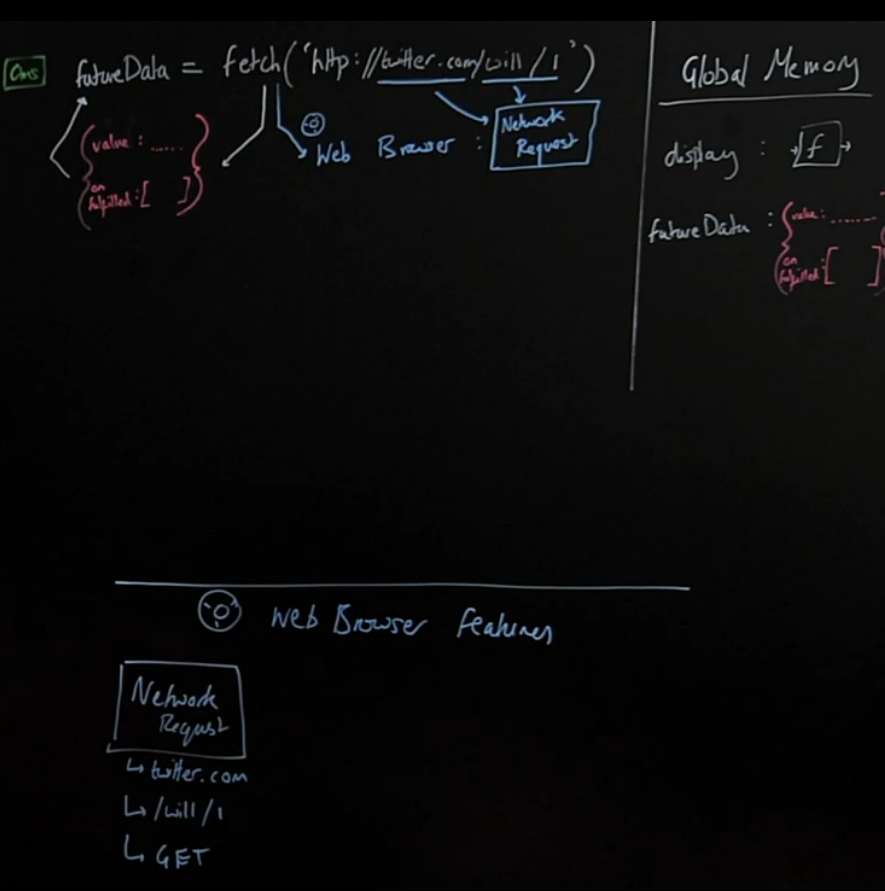 0ms futureData = fetch('http://twitter.com/will/1')
value : ......
on
fulfilled : [ ]
Web Browser :
Network
Request
Global Memory
display : f
futureData : value : .......
on
fulfilled : [ ]
Web Browser Features
Network
Request
twitter.com
/will/1
GET